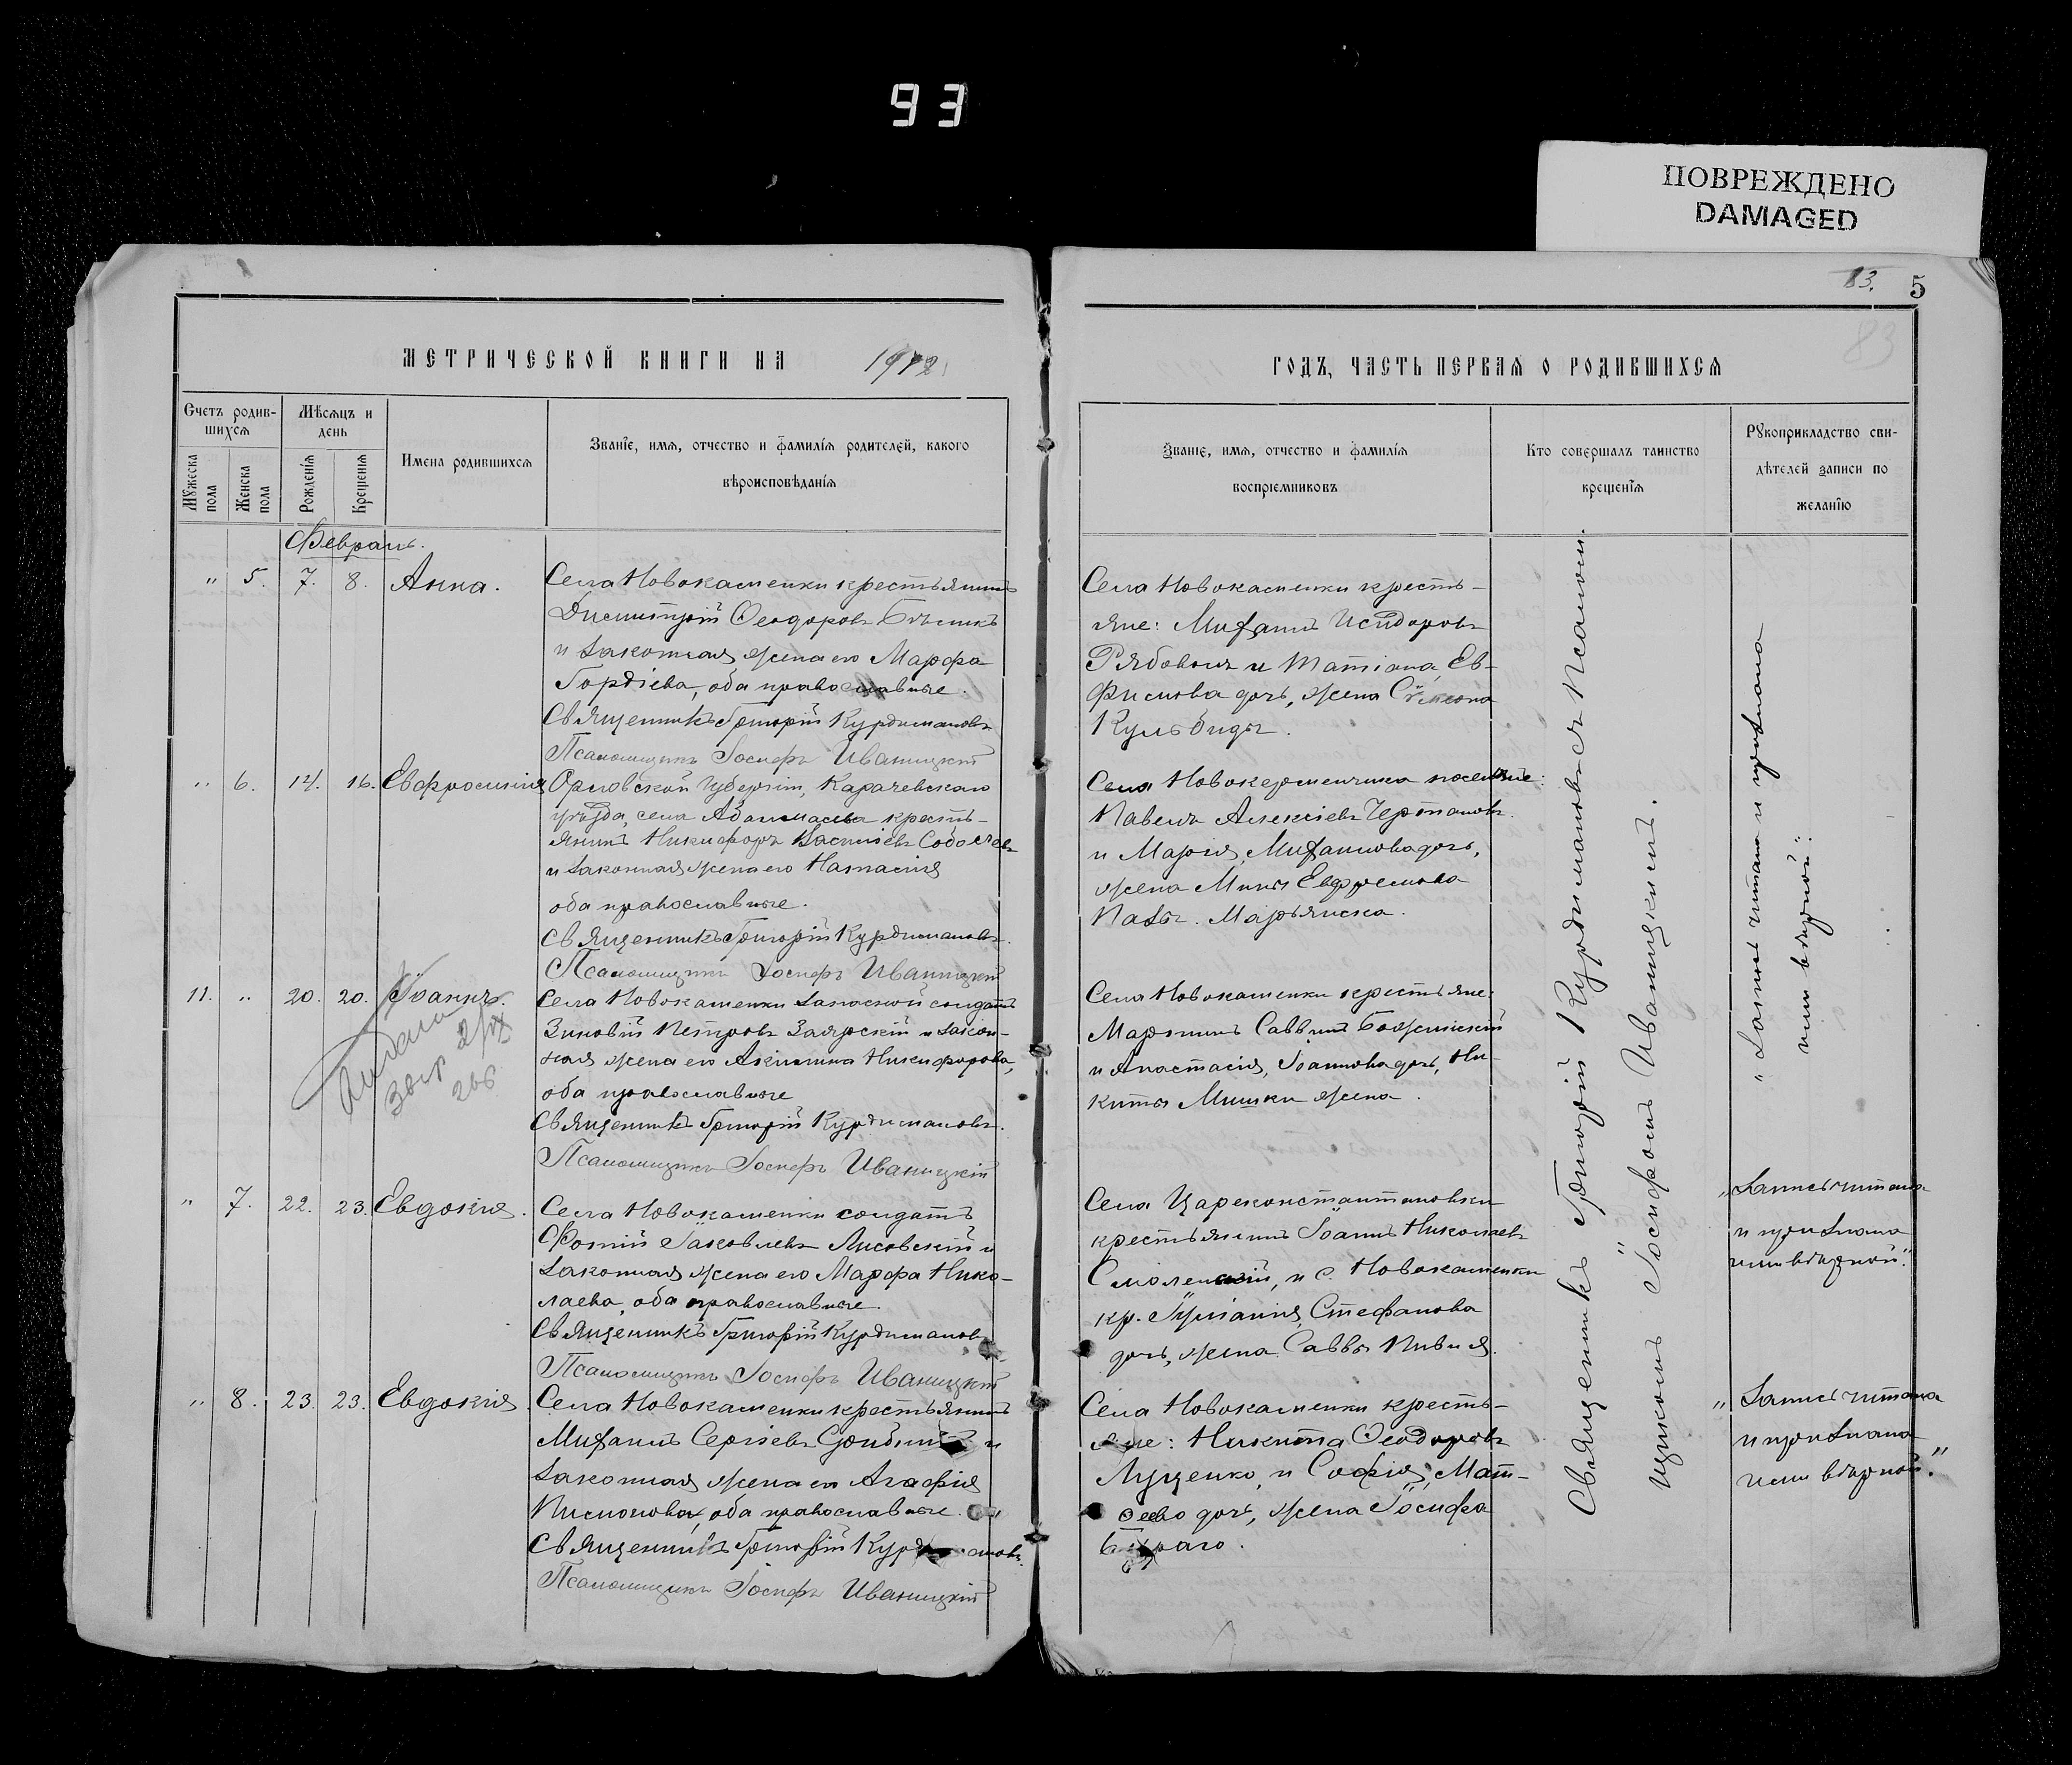 93
ПОВРЕЖДЕНО
DAMAGED
83.
5
83
МЕТРИЧЕСКОЙ КНИГИ НА 1912
ГОДЪ, ЧАСТЬ ПЕРВАЯ О РОДИВШИХСЯ
Счетъ родившихся
Мужеска пола
Женска пола
Мѣсяцъ и день
Рожденія
Крещенія
Имена родившихся
Званіе, имя, отчество и фамилія родителей, какого
вѣроисповѣданія
Званіе, имя, отчество и фамилія
воспріемниковъ
Кто совершалъ таинство
крещенія
Рукоприкладство сви-
дѣтелей записи по
желанію
Февраль.
" 5. 7. 8. Анна.
Села Новокаменки крестьянинъ
Димитрій Ѳеодоровъ
и законная жена его Марфа
Гордіева, оба православные.
Священникъ Григорій Курдимановъ
Псаломщикъ Іосифъ Иваницкій
Села Новокаменки кресть-
яне: Михаилъ Исидоровъ
Рябоволъ и Татіана, Ев-
фимова дочь, жена Сѵмеона
Кульбиды.
" 6. 14. 16. Евфросинія
Орловской губерніи, Карачевскаго
уѣзда, села кресть-
янинъ Никифоръ Васильевъ
и законная жена его
оба православные.
Священникъ Григорій Курдимановъ.
Псаломщикъ Іосифъ Иваницкій
Села Новокерменчика поселяне:
Павелъ Алексіевъ Чертановъ
и Марія, Михаилова дочь,
жена Мины Евфремова
11. " 20. 20. Іоаннъ.
Села Новокаменки запасной солдатъ
Зиновій Петровъ Заярскій и закон-
ная жена его Акилина Никифорова,
оба православные
Священникъ Григорій Курдимановъ.
Псаломщикъ Іосифъ Иваницкій
Села Новокаменки крестьяне:
Мартинъ Саввинъ
и Анастасія, Іоаннова дочь, Ни-
киты Мишки жена.
" 7. 22. 23. Евдокія.
Села Новокаменки солдатъ
Фотій Іаковлевъ Лисовскій и
законная жена его Марфа Нико-
лаева, оба православные.
Священникъ Григорій Курдимановъ
Псаломщикъ Іосифъ Иваницкій
Села Цареконстантиновки
крестьянинъ Іоаннъ Николаевъ
Смоленскій, и с. Новокаменки
кр. Іуліанія, Стефанова
дочь, жена Саввы
" 8. 23. 23. Евдокія.
Села Новокаменки крестьянинъ
Михаилъ Сергіевъ и
законная жена его Агафія
оба православные.
Священникъ Григорій Курдимановъ
Псаломщикъ Іосифъ Иваницкій
Села Новокаменки кресть-
яне: Никита Ѳеодоровъ
Луценко, и Софія, Мат-
ѳеева дочь, жена Іосифа
Священникъ Григорій Курдимановъ съ Псалом-
щикомъ Іосифомъ Иваницкимъ.
"Запись читана и признана
ими вѣрной".
"Запись читана
и признана
ими вѣрной".
"Запись читана
и признана
ими вѣрной."